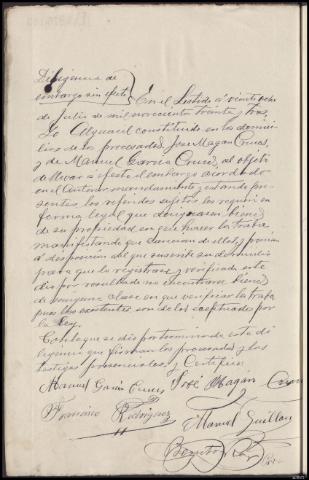 Diligencia de
embargo sin efecto
En el Custodio á veinte ocho
de Julio de mil novecientos treinta y tres
Yo Alguacil constituido en los domici-
lios de los procesados, Jose Magan Cruces,
y de Manuel Garcia Cruces, al objeto
de llevar á efecto el embargo acordado
en el anterior mandamiento, y estando pre-
sentes, los referidos sujetos los requerí en
forma legal que designasen bienes
de su propiedad en que hacer la traba
manifestando que carecian de ellos, y ponian
á disposicion del que suscribe su domicilio
para que la registrase, y verificado este
dio por resultado no encontrarse bienes
de ninguna clase en que verificar la traba
pues los existentes son de los exceptuados por
la Ley.
Con lo que se dio por terminada esta di-
ligencia que firman los procesados y los
testigos presenciales, y Certifico.
Manuel Garcia Cruces Jose Magan Cruces
Francisco Rodriguez
Manuel Guillan
Benito